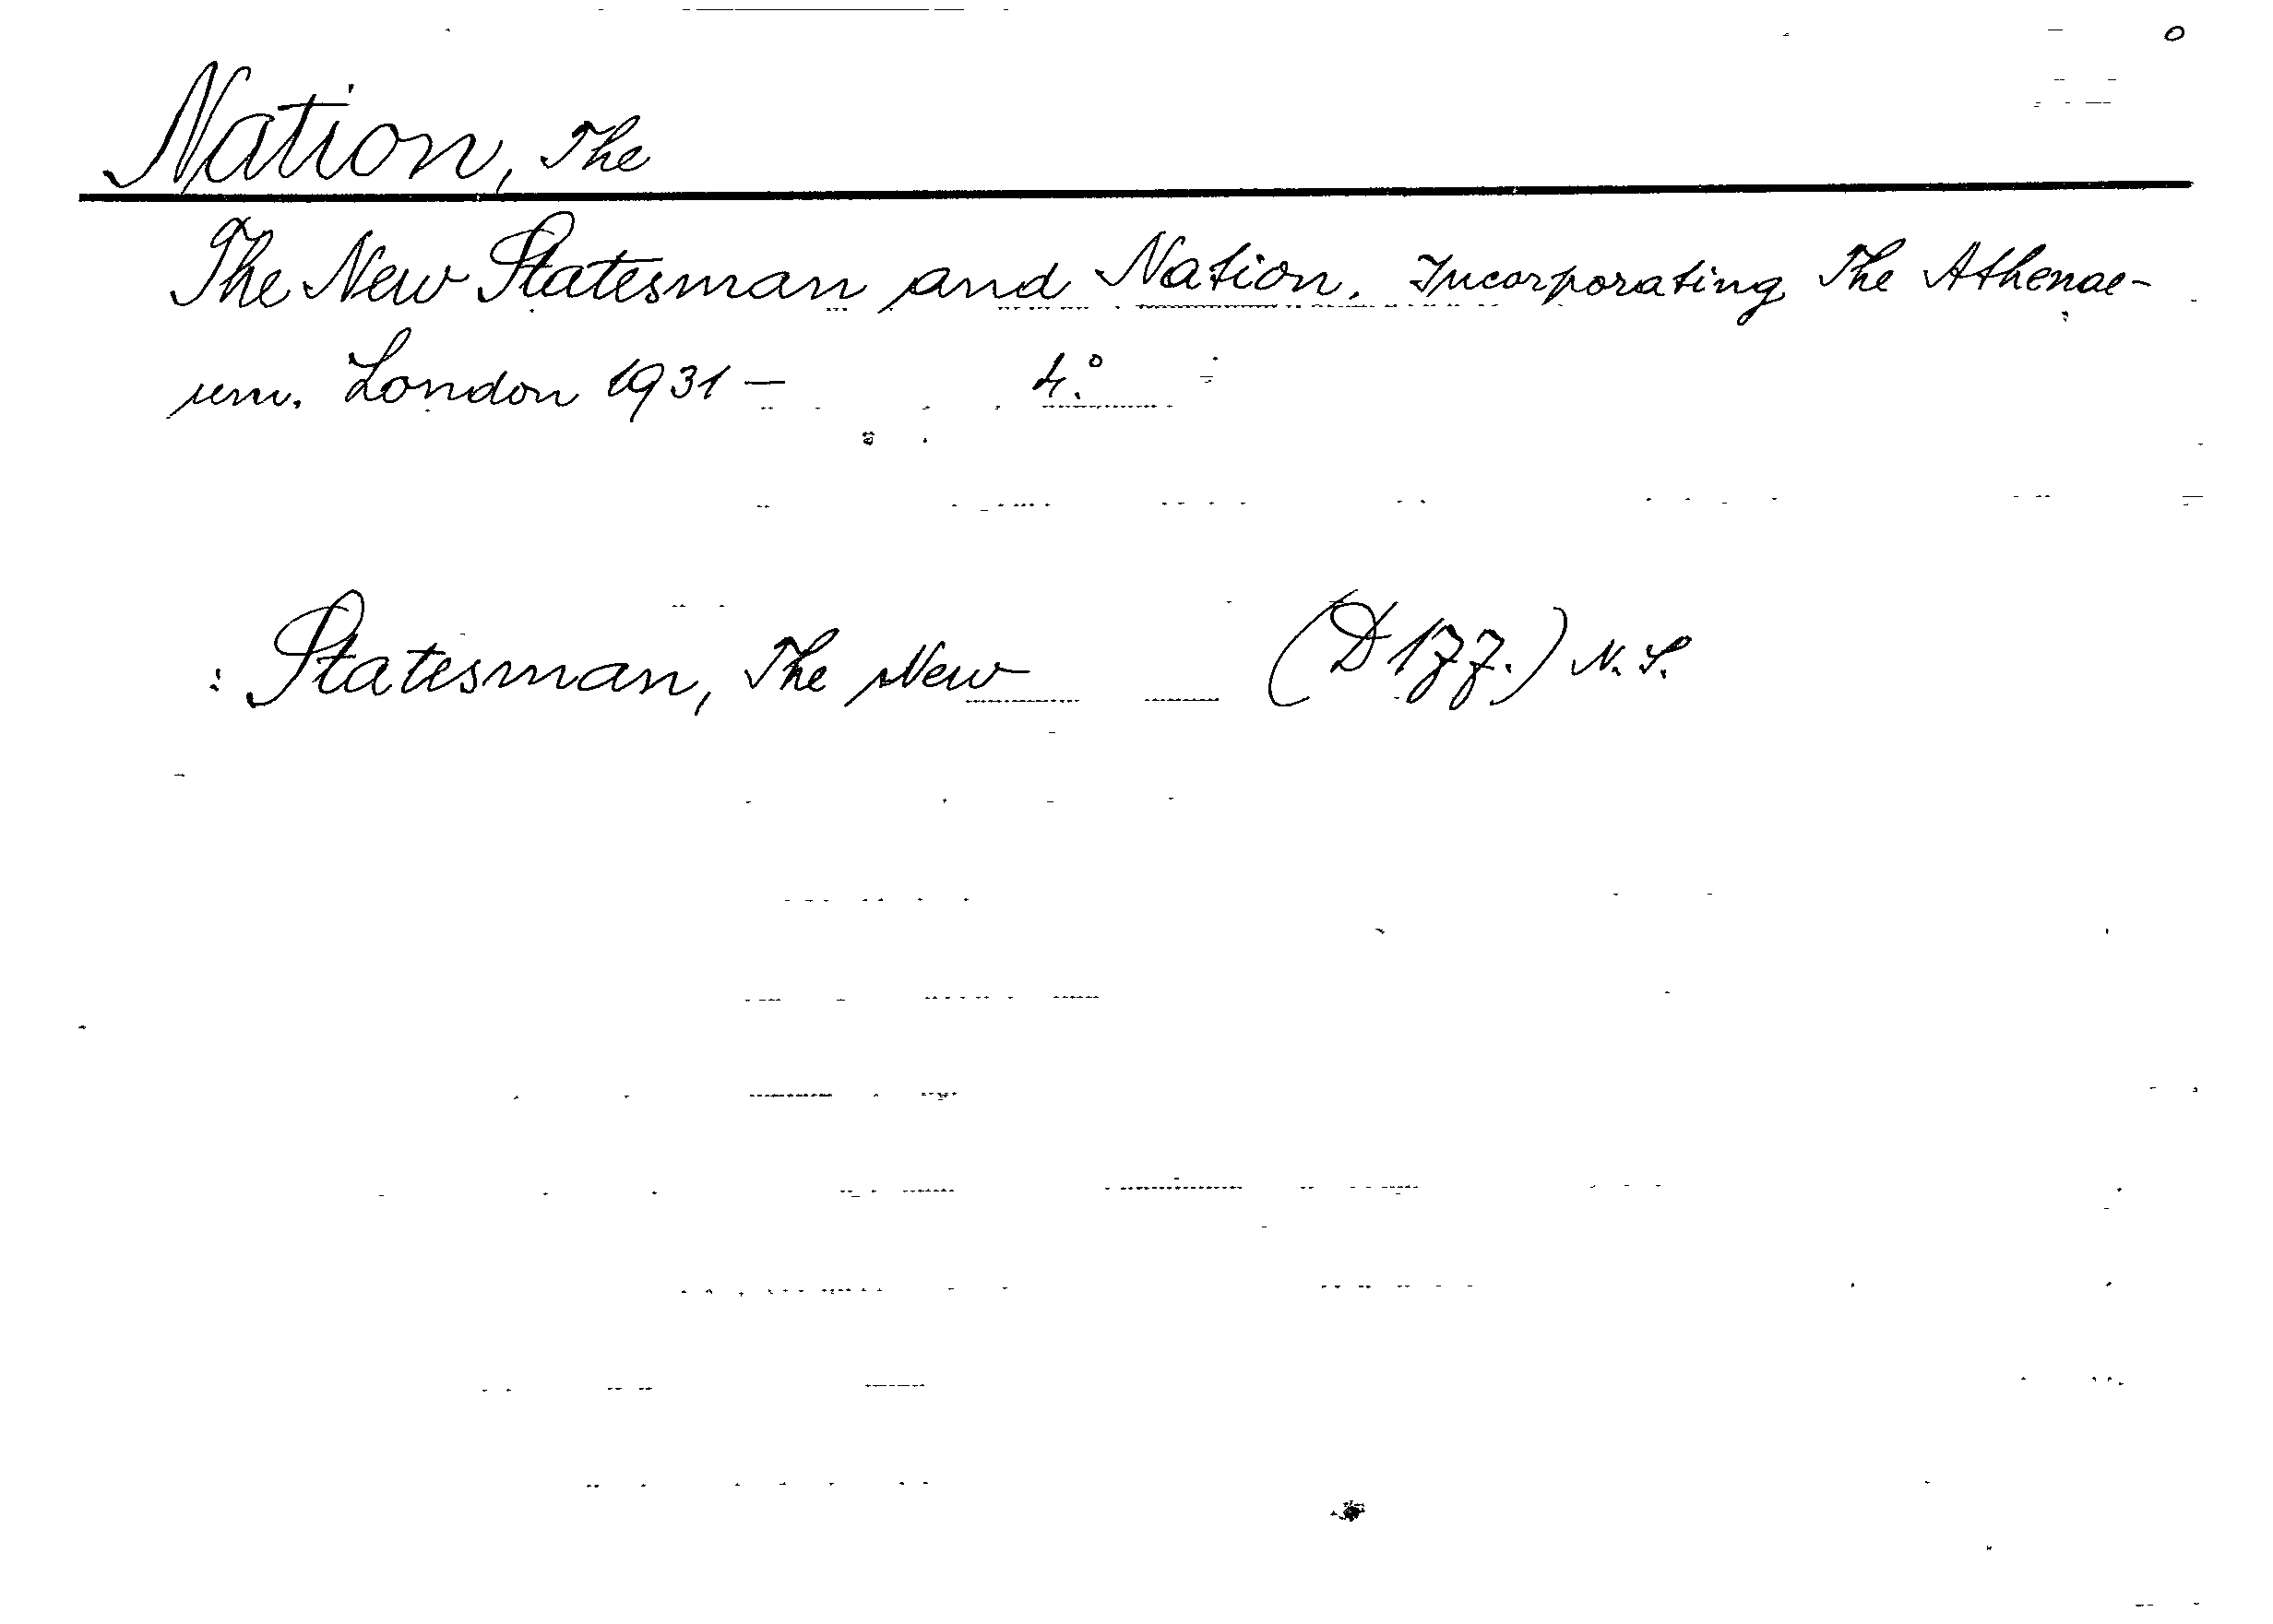 Nation, The
The New Statesman and Nation. Incorporating The Athenae-
um. London 1931 — 4.°
: Statesman, The New (D 177.) N. S.